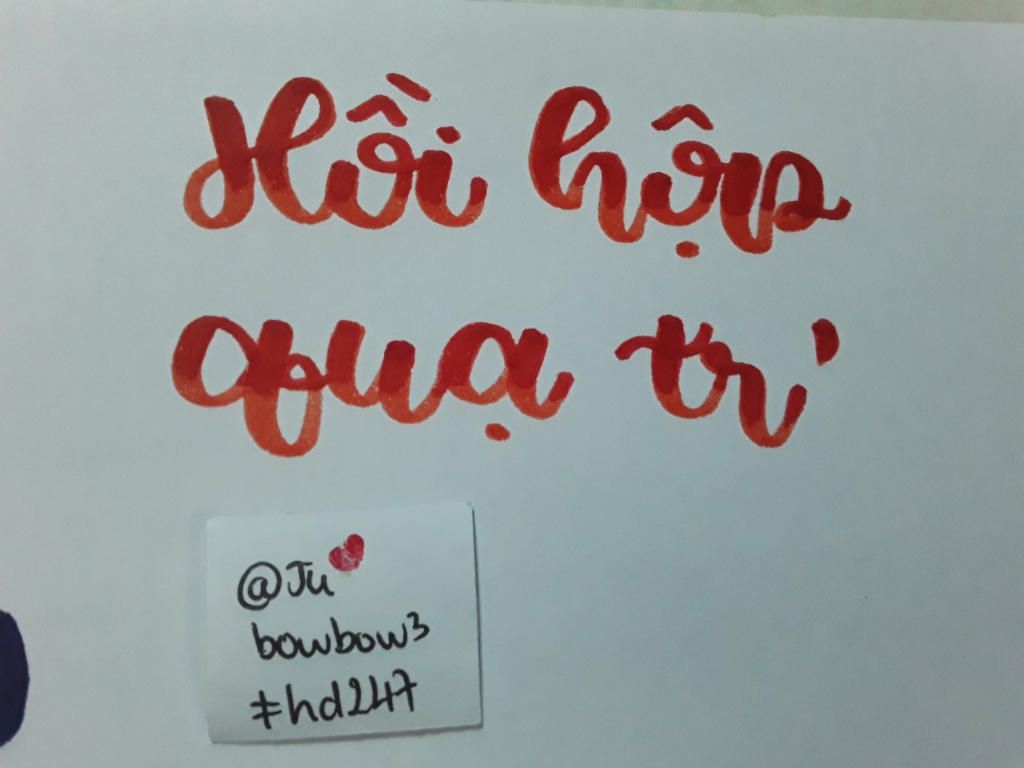 Hồi hộp
quạ tr'
@Ju
bowbow3
#hd247